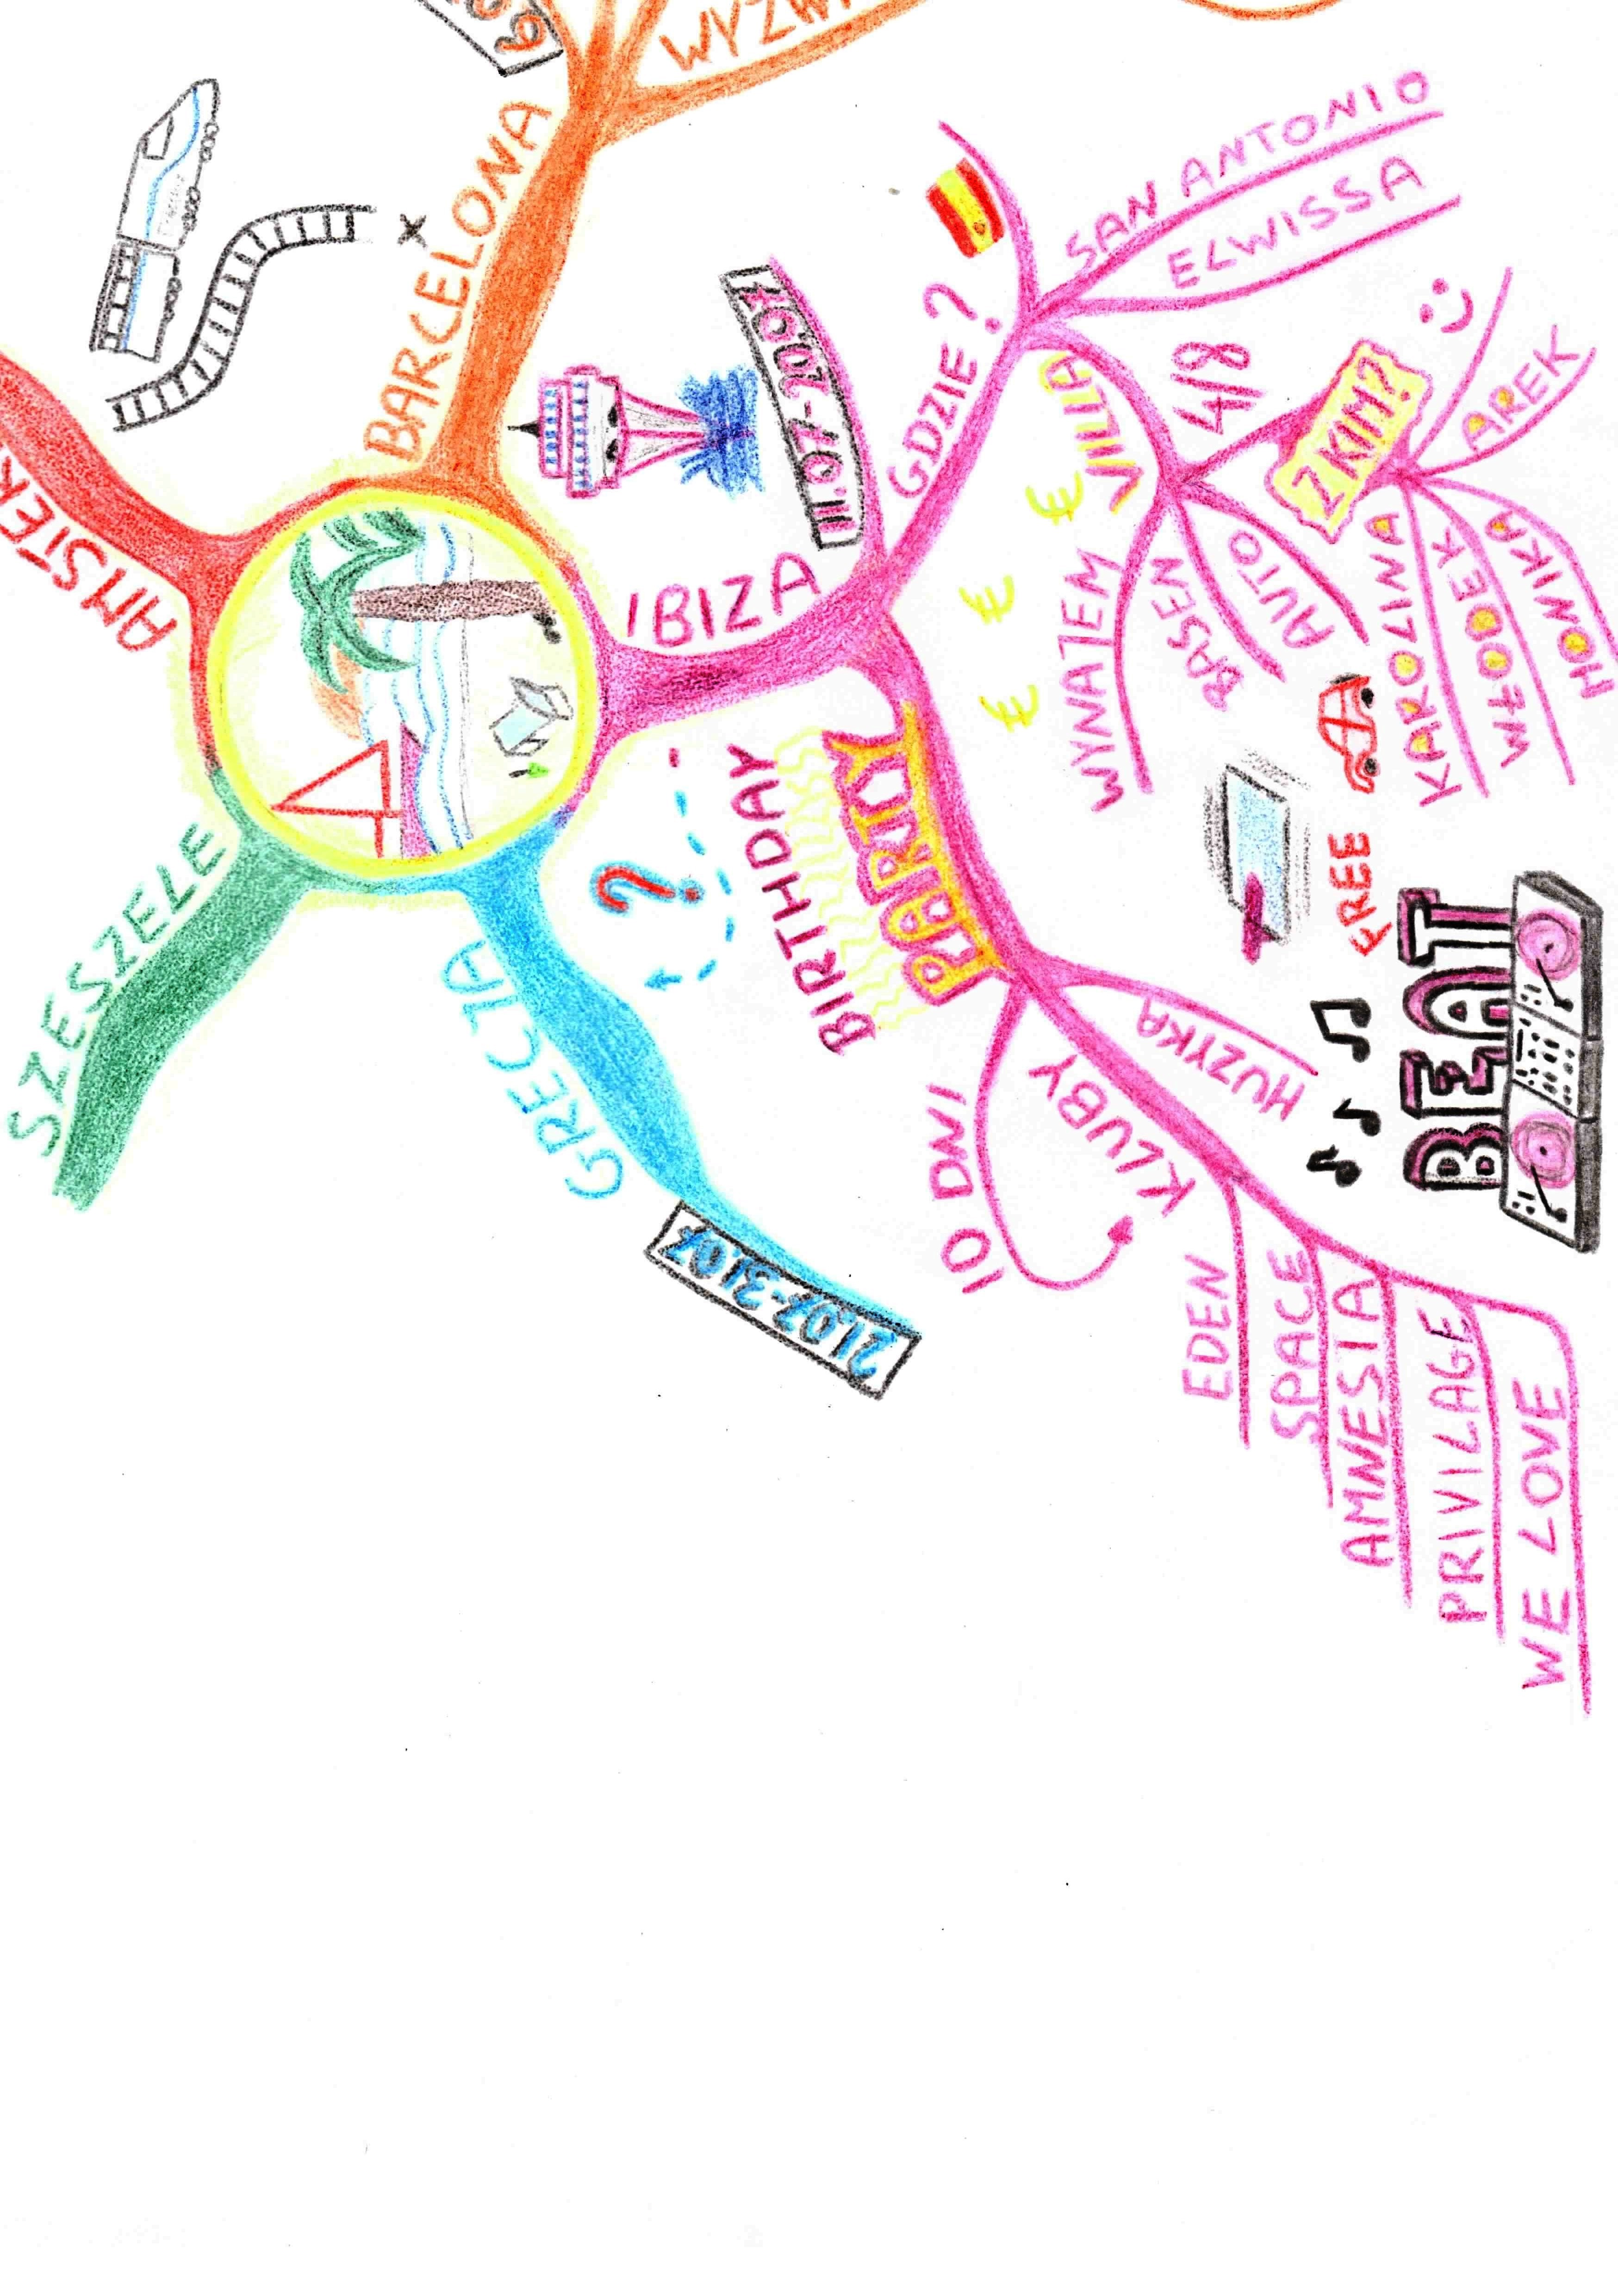 BARCELONA
IBIZA
11.07-20.07
GDZIE?
SAN ANTONIO
ELWISSA
VILLA
€ € €
4/8
Z KIM?
AREK
KAROLINA
WŁODEK
MONIKA
WYNAJEM
BASEN
AUTO
FREE
BIRTHDAY
PARTY
10 DNI
MUZYKA
BEAT
KLUBY
EDEN
SPACE
AMNESIA
PRIVILAGE
WE LOVE
?
GRECJA
21.07-31.07
SZESZELE